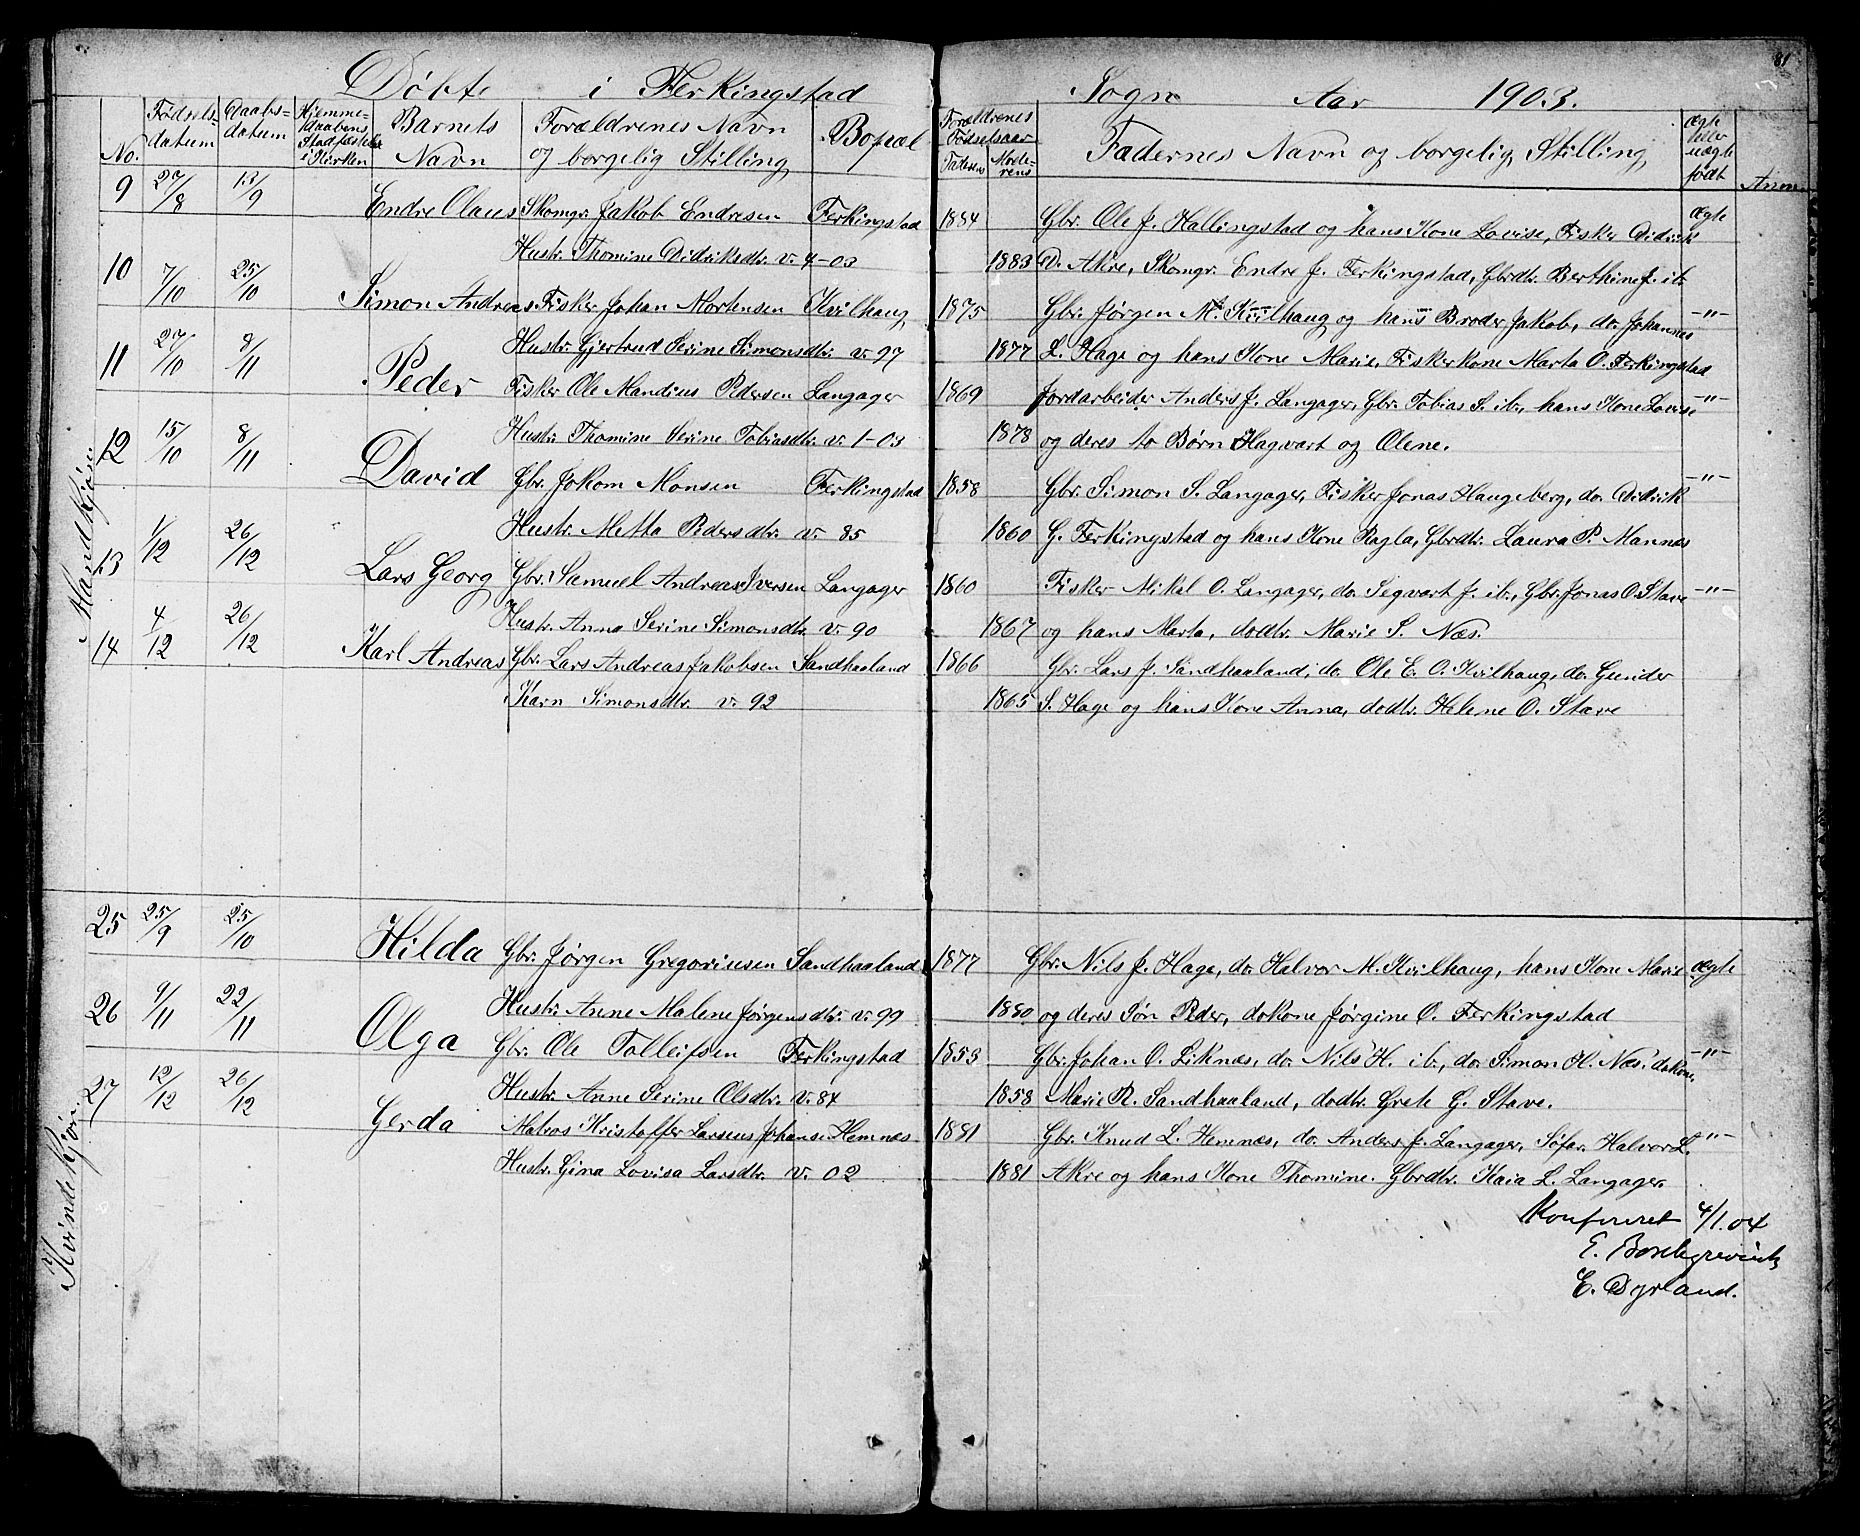 81
Døbte i Ferkingstad Sogn Aar 1903.
No. Fødsels-datum Daabs-datum Hjemme-daabens Stadfæstelse i Kirken Barnets Navn Forældrenes Navn og borgelig Stilling Bopæl Forældrenes Fødselsaar Faderens Moderens Fadernes Navn og borgelig Stilling Ægte eller uægte født Anm
Mandkjøn
9 27/8 13/9 Endre Olaus Skomgr. Jakob Endresen Ferkingstad 1884 Gbr. Ole J. Hallingstad og hans Kone Lovise, Fisker Didrik ægte
Hustr. Thomine Didriksdtr. v. 4-03 1883 D. Akre, Skomgr. Endre J. Ferkingstad, Gbrdtr. Berthine J. ib.
10 7/10 25/10 Simon Andreas Fisker Johan Mortensen Kvilhaug 1875 Gbr. Jørgen M. Kvilhaug og hans Broder Jakob, do. Johannes -"-
Hustr. Gjertrud Serine Simonsdtr. v. 97 1877 L. Hage og hans Kone Marie, Fiskerkone Marta O. Ferkingstad
11 27/10 8/11 Peder Fisker Ole Mandius Pedersen Langager 1869 Jordarbeider Anders J. Langager, Gbr. Tobias S. ib., hans Kone Lovise -"-
Hustr. Thomine Serine Tobiasdtr. v. 1-03 1878 og deres to Børn Hagvart og Olene.
12 15/10 8/11 David Gbr. Jokom Monsen Ferkingstad 1858 Gbr. Simon S. Langager, Fisker Jonas Haugeberg, do. Didrik -"-
Hustr. Metta Pedersdtr. v. 85 1860 G. Ferkingstad og hans Kone Ragla, Gbrdtr. Laura P. Mannes
13 1/12 26/12 Lars Georg Gbr. Samuel Andreas Iversen Langager 1860 Fisker Mikal O. Langager, do. Segvart J. ib., Gbr. Jonas O. Stave -"-
Hustr. Anna Serine Simonsdtr. v. 90 1867 og hans Marta, dodtr. Marie S. Næs.
14 4/12 26/12 Karl Andreas Gbr. Lars Andreas Jakobsen Sandhaaland 1866 Gbr. Lars J. Sandhaaland, do. Ole E. O. Kvilhaug, do. Gunder
Karn Simonsdtr. v. 92 1865 S. Hage og hans Kone Anna, dodtr. Helene O. Stave
Kvindekjøn.
25 25/9 25/10 Hilda Gbr. Jørgen Gregoriusen Sandhaaland 1877 Gbr. Nils J. Hage, do. Halvor M. Kvilhaug, hans Kone Marie ægte
Hustr. Anne Malene Jørgensdtr. v. 99 1880 og deres Søn Peder, dokone Jørgine O. Ferkingstad
26 9/11 22/11 Olga Gbr. Ole Tolleifsen Ferkingstad 1853 Gbr. Johan O. Liknes, do. Nils H. ib., do. Simon H. Næs, dokone, -"-
Hustr. Anne Serine Olsdtr. v. 84 1858 Marie R. Sandhaaland, dodtr. Grete G. Stave.
27 12/12 26/12 Gerda Matros Kristoffer Larsens Johans. Hemnes 1881 Gbr. Knud L. Hemnes, do. Anders J. Langager, Søfar. Halvor L. -"-
Hustr. Gina Lovisa Larsdtr. v. 02 1881 Akre og hans Kone Thomine. Gbrdtr. Kaia L. Langager.
Konfereret 4/1.04
E. Borchgrevink
E. Dyrland.